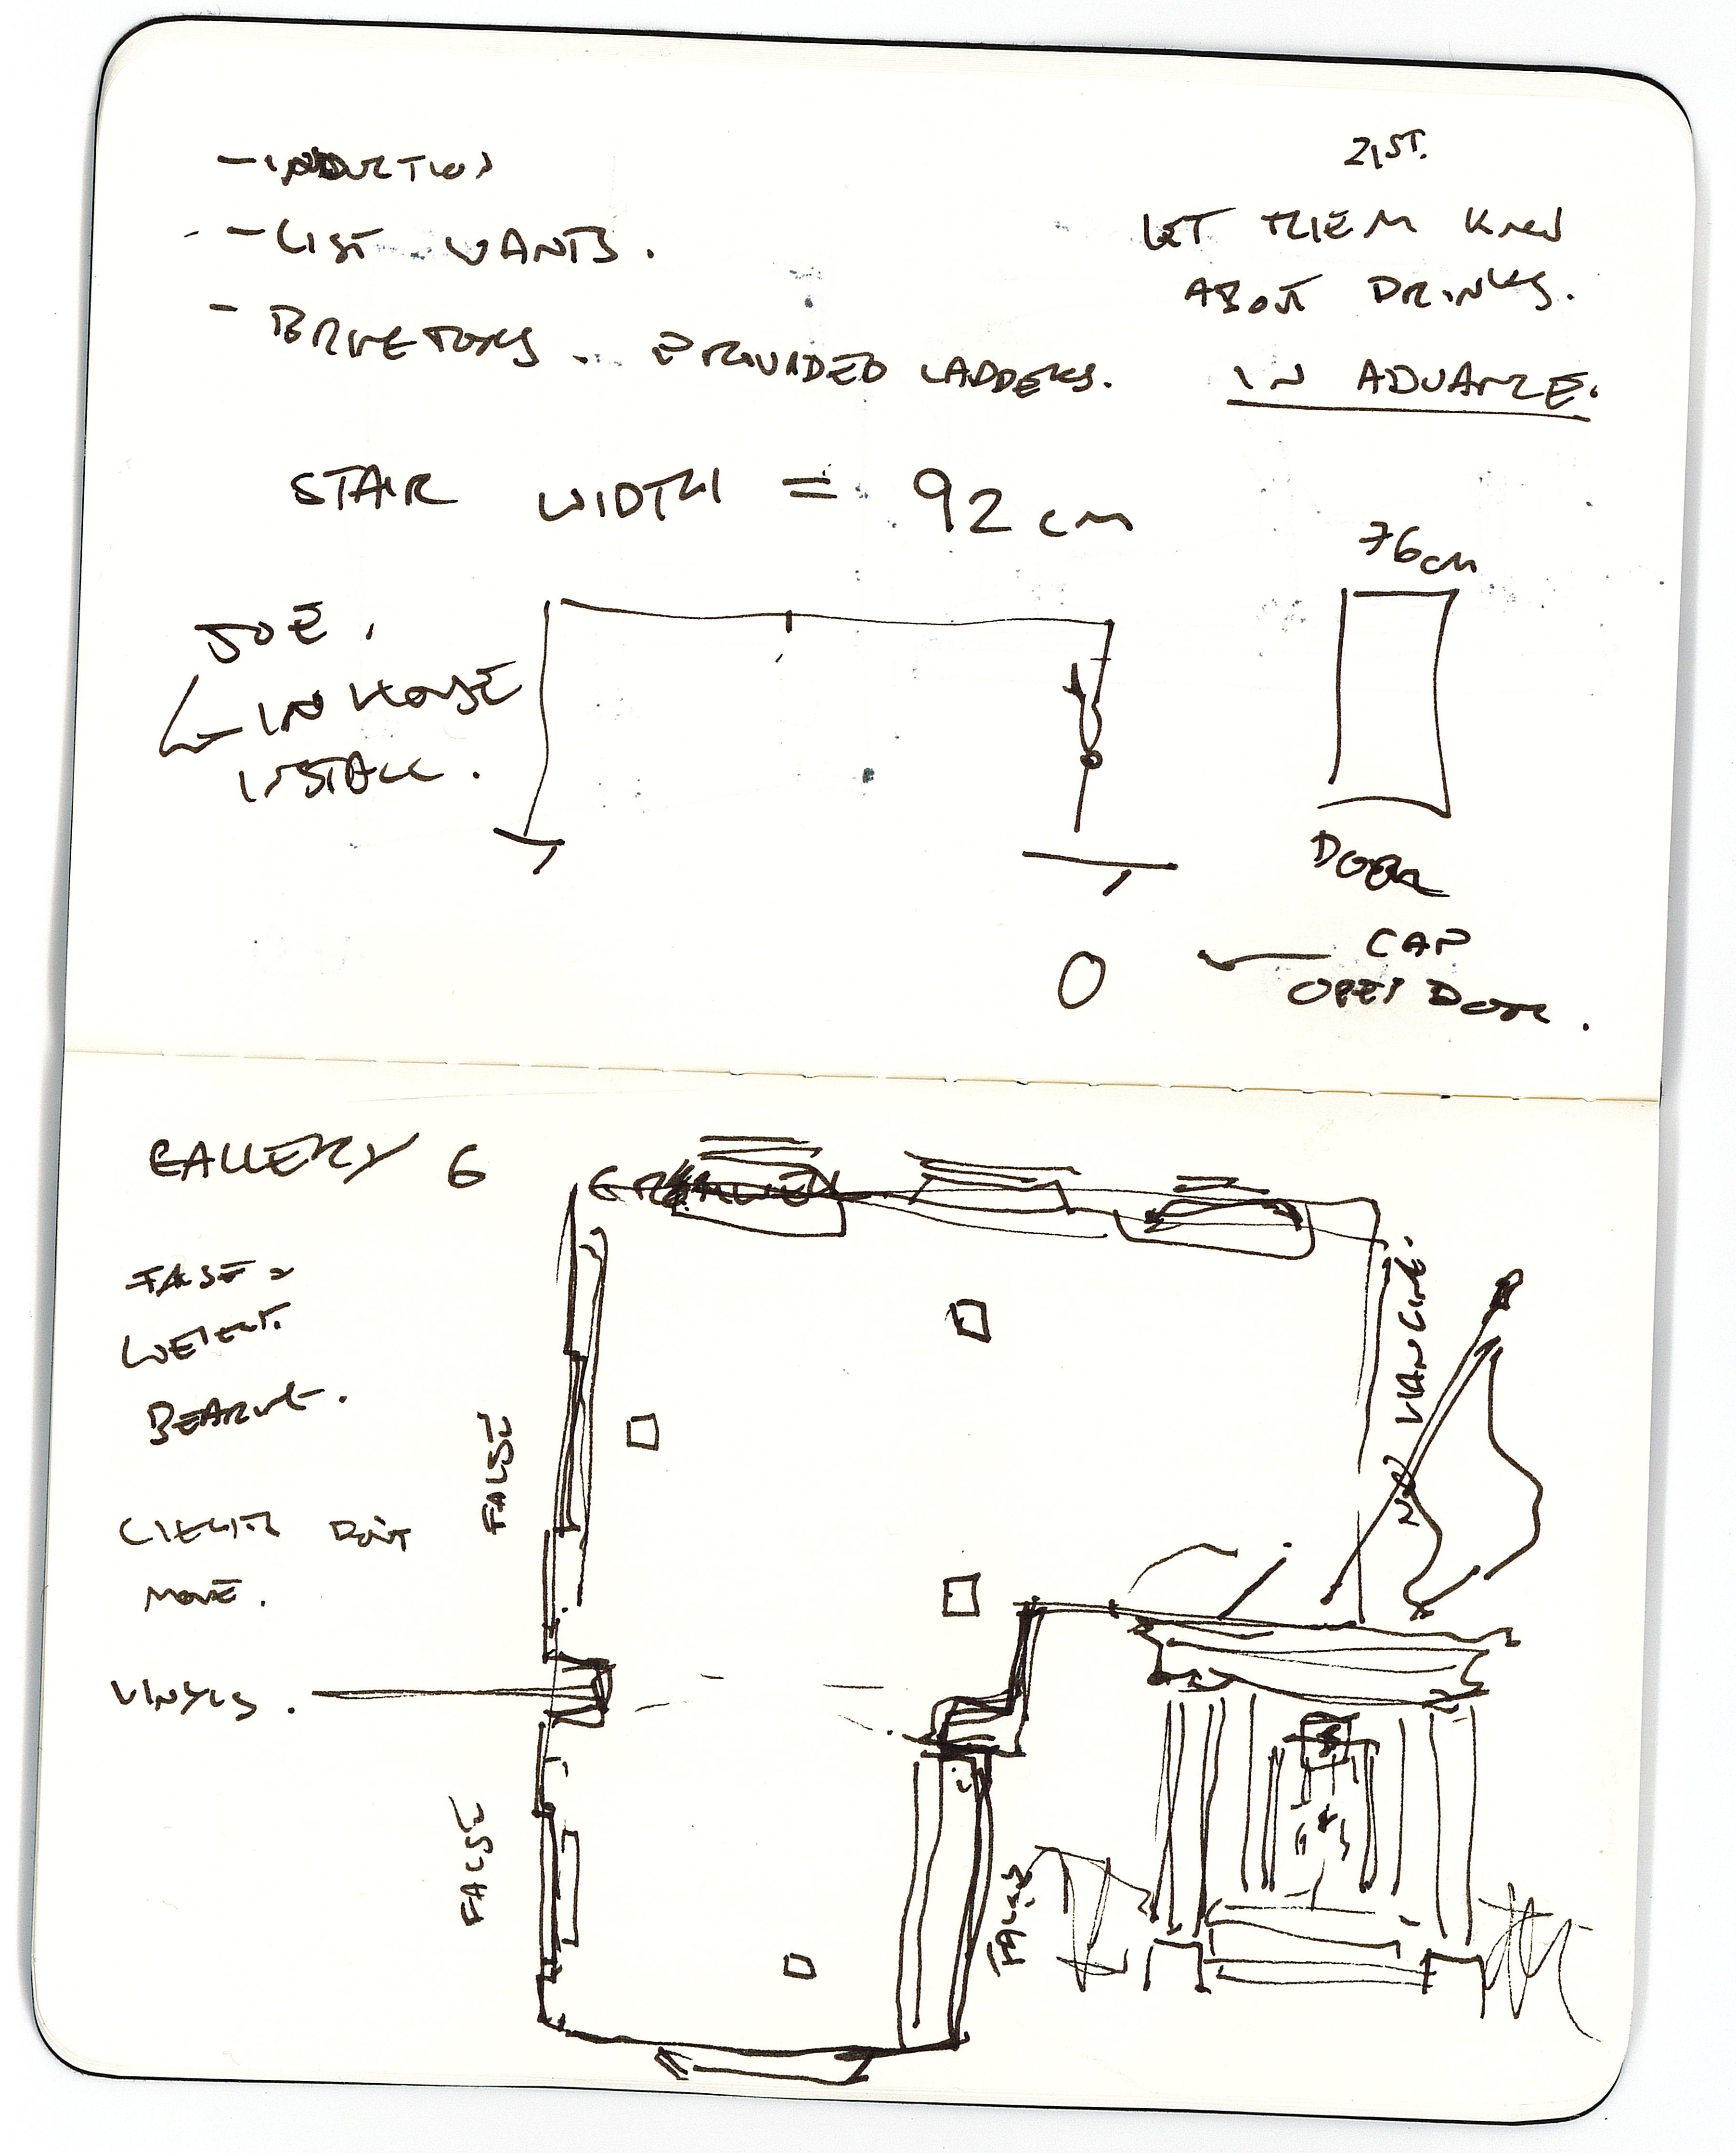 - INDUCTION
- LIST WANTS.
- PROVIDED LADDERS.
21ST.
LET THEM KNOW
ABOUT DRINKS.
IN ADVANCE.
STAIR WIDTH = 92 cm
JOE.
IN HOUSE
INSTALL.
76cm
DOOR
CAP
OPEN DOOR.
GALLERY 6
FALSE =
WEIGHT
BEARING.
DON'T
MOVE.
VINYLS.
FALSE
FALSE
FALSE
NO